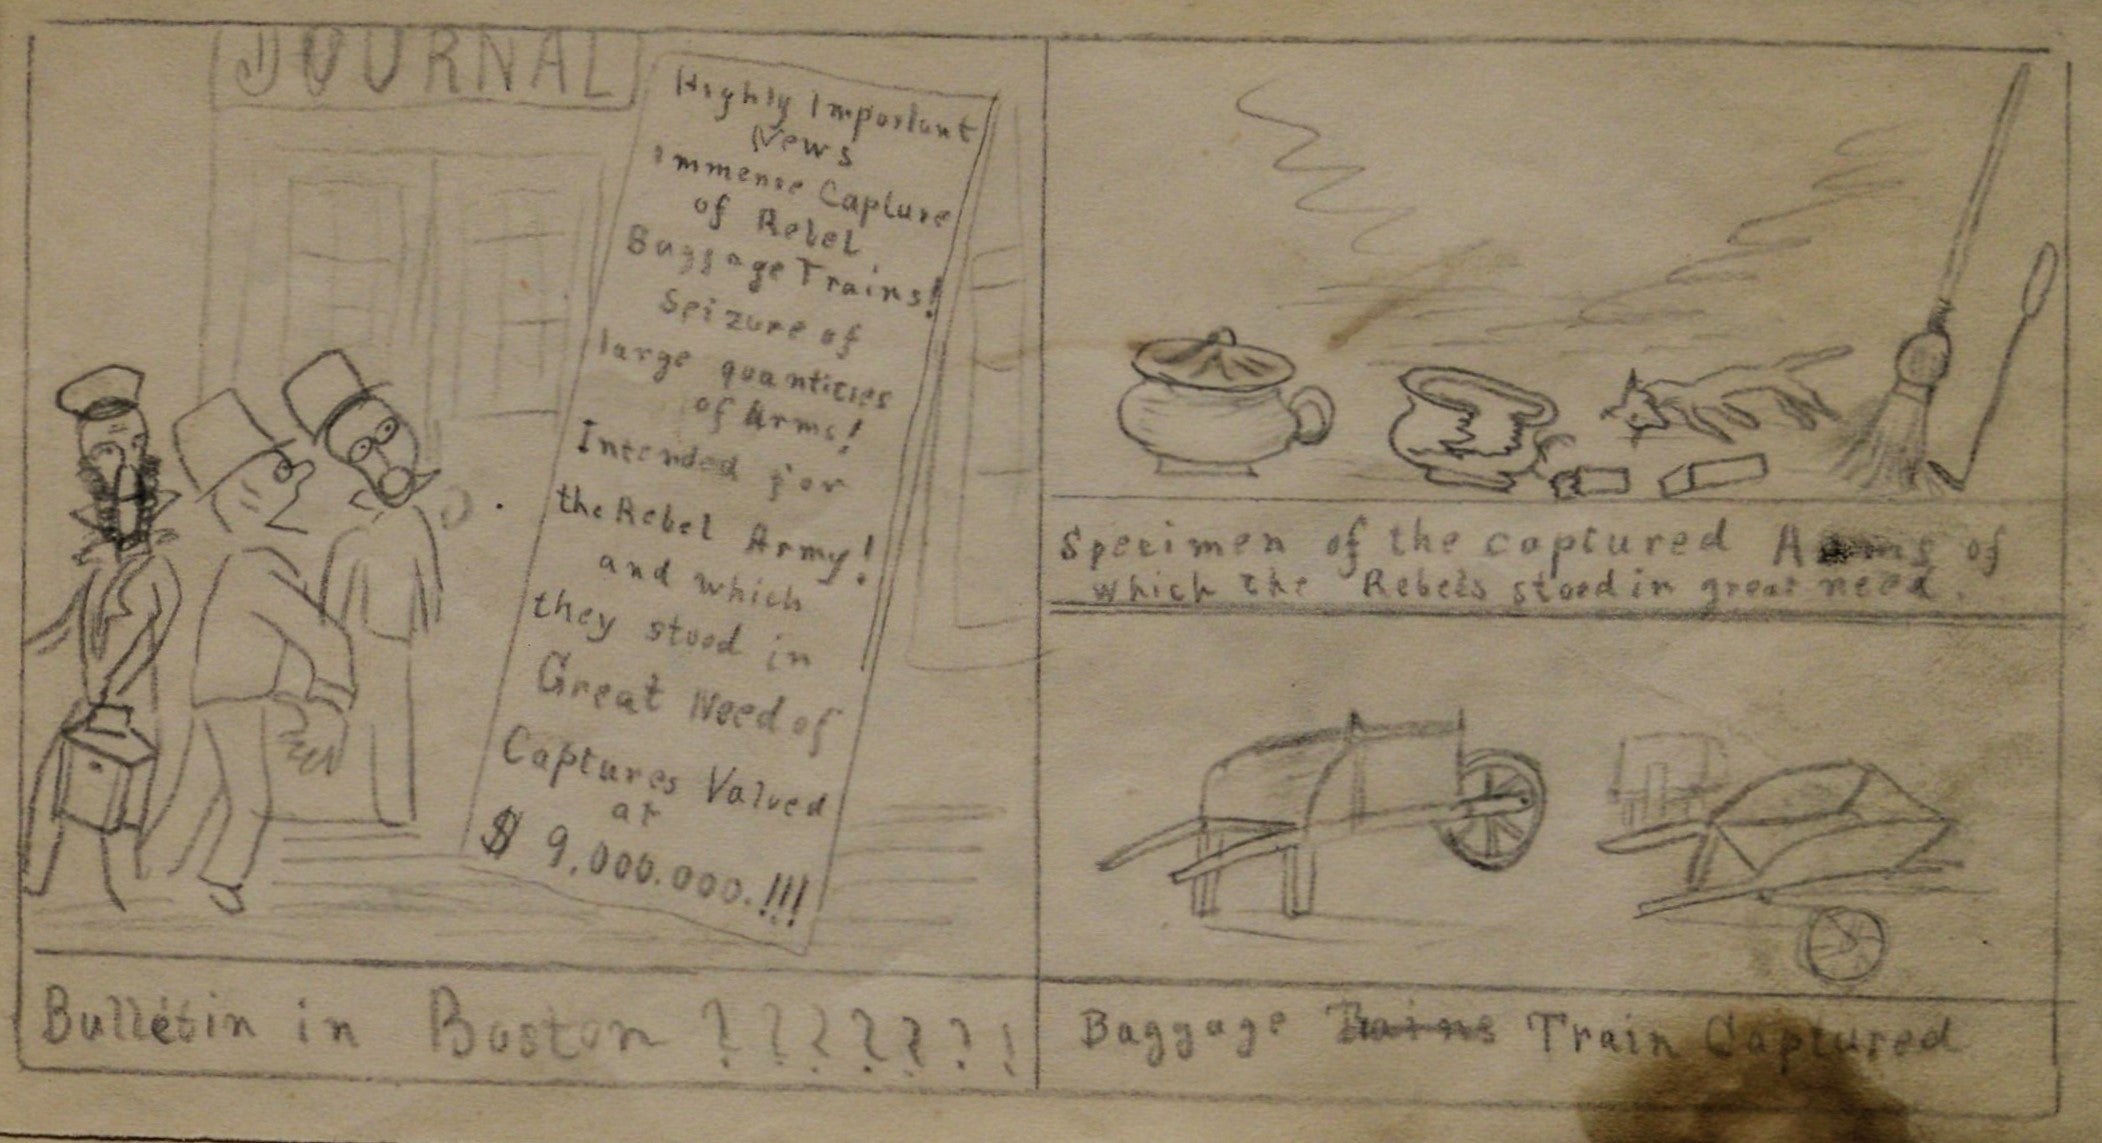 JOURNAL
Highly Important
News
immense Capture
of Rebel
Baggage Trains!
Seizure of
large quantities
of Arms!
Intended for
the Rebel Army!
and which
they stood in
Great Need of
Captures Valued
at
$ 9.000.000.!!!
Bulletin in Boston ??????!
Specimen of the captured Arms of
which the Rebels stood in great need.
Baggage Trains Train Captured